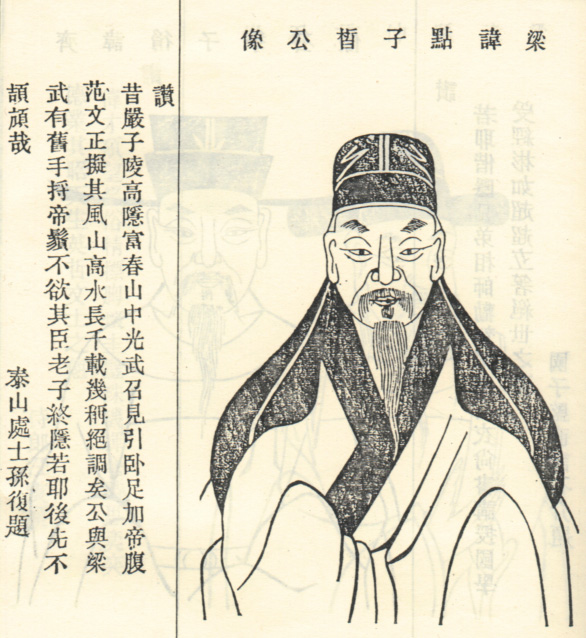 梁諱點子皙公像
讚
昔嚴子陵高隱富春山中光武召見引卧足加帝腹
范文正擬其風山高水長千載幾稱絕調矣公與梁
武有舊手捋帝鬚不欲其臣老子終隱若耶後先不
頡頏哉
泰山處士孫復題